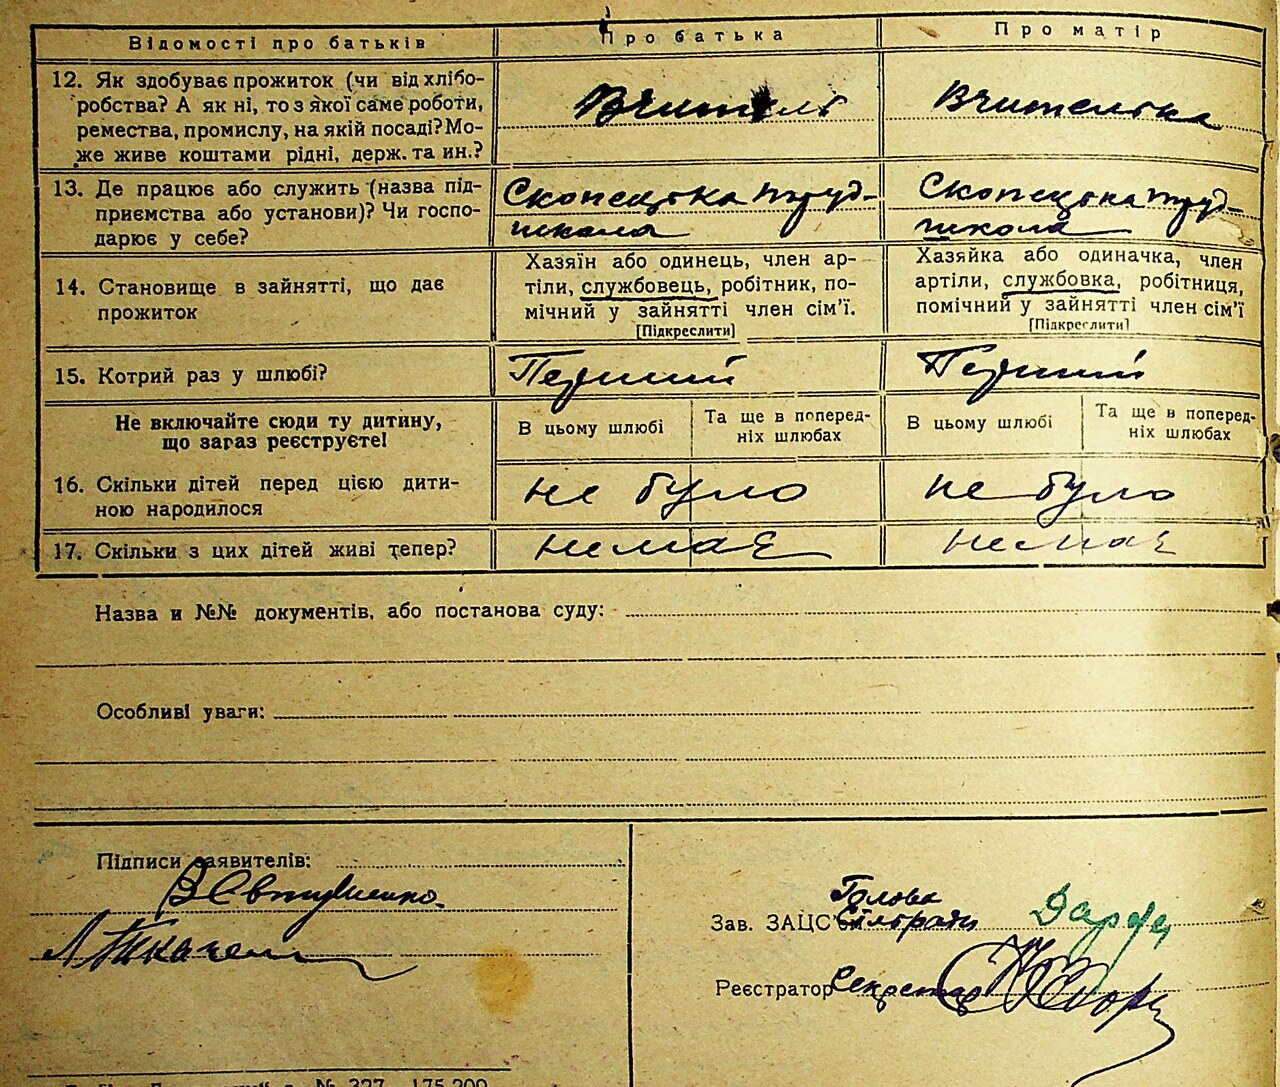 Відомості про батьків
Про батька
Про матір
12. Як здобуває прожиток (чи від хлібо-
робства? А як ні, то з якої саме роботи,
ремества, промислу, на якій посаді? Мо-
же живе коштами рідні, держ. та ин.?
Вчитель
Вчителька
13. Де працює або служить (назва під-
приємства або установи)? Чи госпо-
дарює у себе?
Скопецька труд-
школа
Скопецька труд-
школа
14. Становище в зайнятті, що дає
прожиток
Хазяїн або одинець, член ар-
тіли, службовець, робітник, по-
мічний у зайнятті член сім'ї.
[Підкреслити]
Хазяйка або одиначка, член
артіли, службовка, робітниця,
помічний у зайнятті член сім'ї
[Підкреслити]
15. Котрий раз у шлюбі?
Перший
Перший
Не включайте сюди ту дитину,
що зараз реєструєте!
В цьому шлюбі
Та ще в поперед-
ніх шлюбах
В цьому шлюбі
Та ще в поперед-
ніх шлюбах
16. Скільки дітей перед цією дити-
ною народилося
не було
не було
17. Скільки з цих дітей живі тепер?
немає
немає
Назва и №№ документів, або постанова суду:
Особливі уваги:
Підписи заявителів:
В Євтушенко
Голова
Зав. ЗАЦС'ом Сільради
Реєстратор Секретар
№ 327 175.200